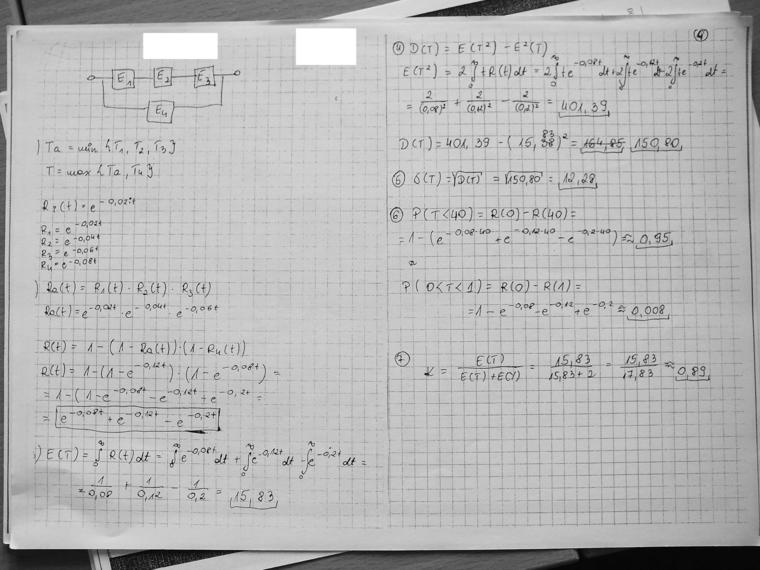 E₁ E₂ E₃
E₄
) Ta = min {T₁, T₂, T₃}
T = max {Ta, T₄}
R₁ = e^-0,02t
R₂ = e^-0,04t
R₃ = e^-0,06t
R₄ = e^-0,08t
) Ra(t) = R₁(t) · R₂(t) · R₃(t)
Ra(t) = e^-0,02t · e^-0,04t · e^-0,06t
R(t) = 1-(1-Ra(t))·(1-R₄(t))
R(t) = 1-(1-e^-0,12t)·(1-e^-0,08t) =
= 1-(1-e^-0,08t -e^-0,12t +e^-0,2t =
= e^-0,08t + e^-0,12t - e^-0,2t
) E(T) = ∫₀^∞ R(t)dt = ∫₀^∞ e^-0,08t dt + ∫₀^∞ e^-0,12t dt - ∫₀^∞ e^-0,2t dt =
= 1/0,08 + 1/0,12 - 1/0,2 = 15,83
④
④ D(T) = E(T²) - E²(T)
E(T²) = 2∫₀^∞ tR(t)dt = 2∫₀^∞ te^-0,08t dt + 2∫₀^∞ te^-0,12t dt - 2∫₀^∞ te^-0,2t dt =
= 2/(0,08)² + 2/(0,12)² - 2/(0,2)² = 401,39
D(T) = 401,39 - (15,83)² = 164,85 150,80
⑤ σ(T) = √D(T) = √150,80 = 12,28
⑥ P(T<40) = R(0) - R(40) =
= 1-(e^-0,08·40 + e^-0,12·40 - e^-0,2·40) ≈ 0,95
P(0<T<1) = R(0) - R(1) =
= 1-e^-0,08 -e^-0,12 +e^-0,2 ≈ 0,008
⑦ K = E(T)/E(T)+E(Y) = 15,83/15,83+2 = 15,83/17,83 ≈ 0,89